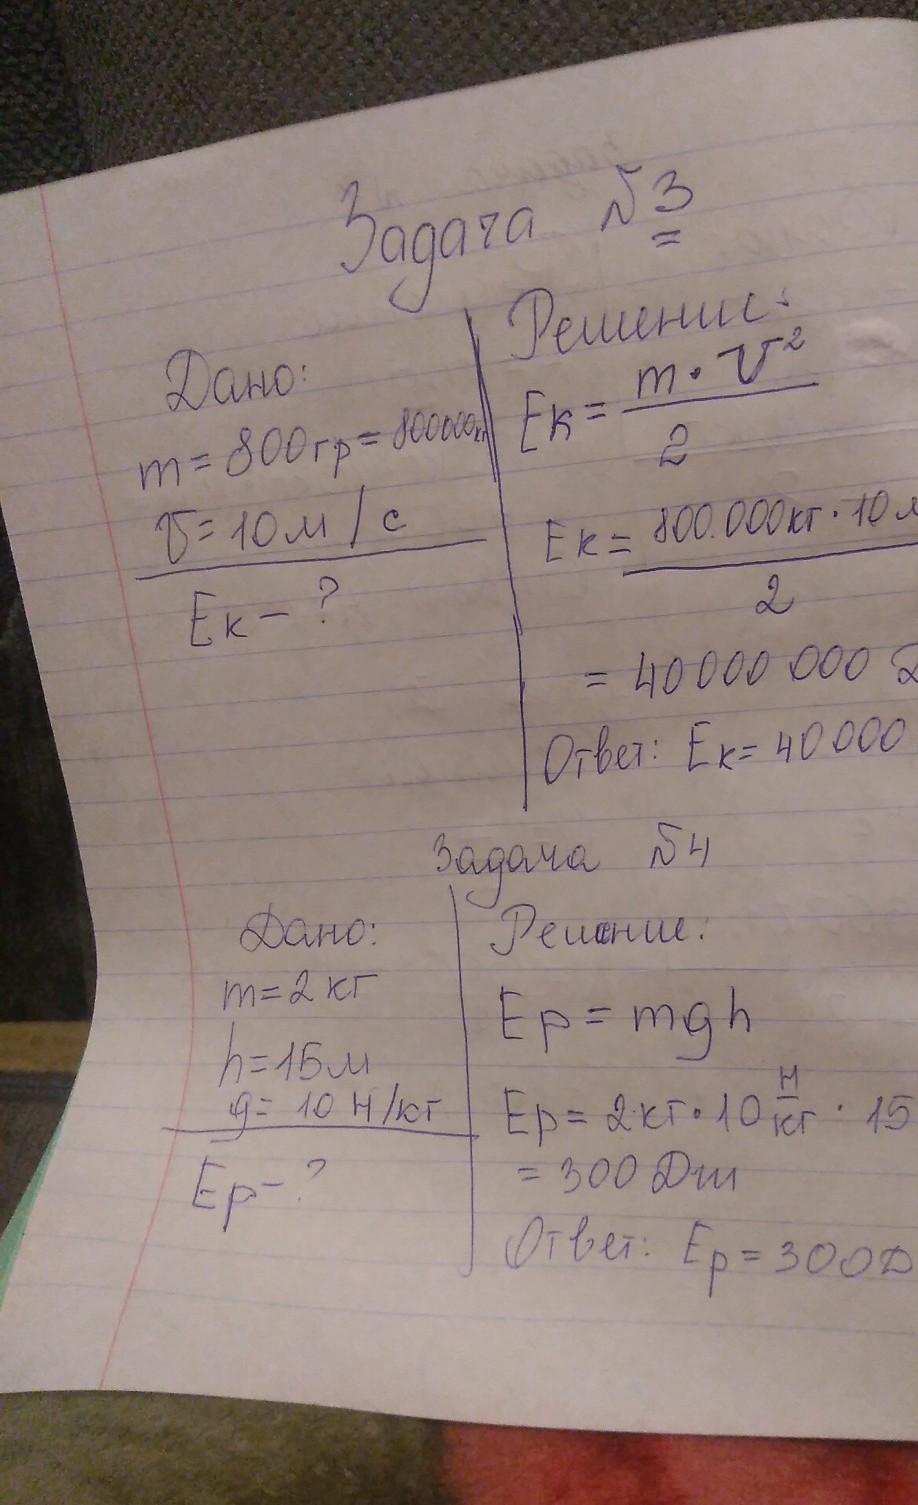 Задача №3
Дано:
m = 800гр = 800000кг
v = 10м/с
Eк - ?
Решение:
Eк = m · v² / 2
Eк = 800.000кг · 10м / 2
= 40 000 000 Д
Ответ: Eк = 40 000
Задача №4
Дано:
m = 2кг
h = 15м
g = 10 Н/кг
Ep - ?
Решение:
Ep = mgh
Ep = 2кг · 10 Н/кг · 15
= 300 Дж
Ответ: Ep = 300Д